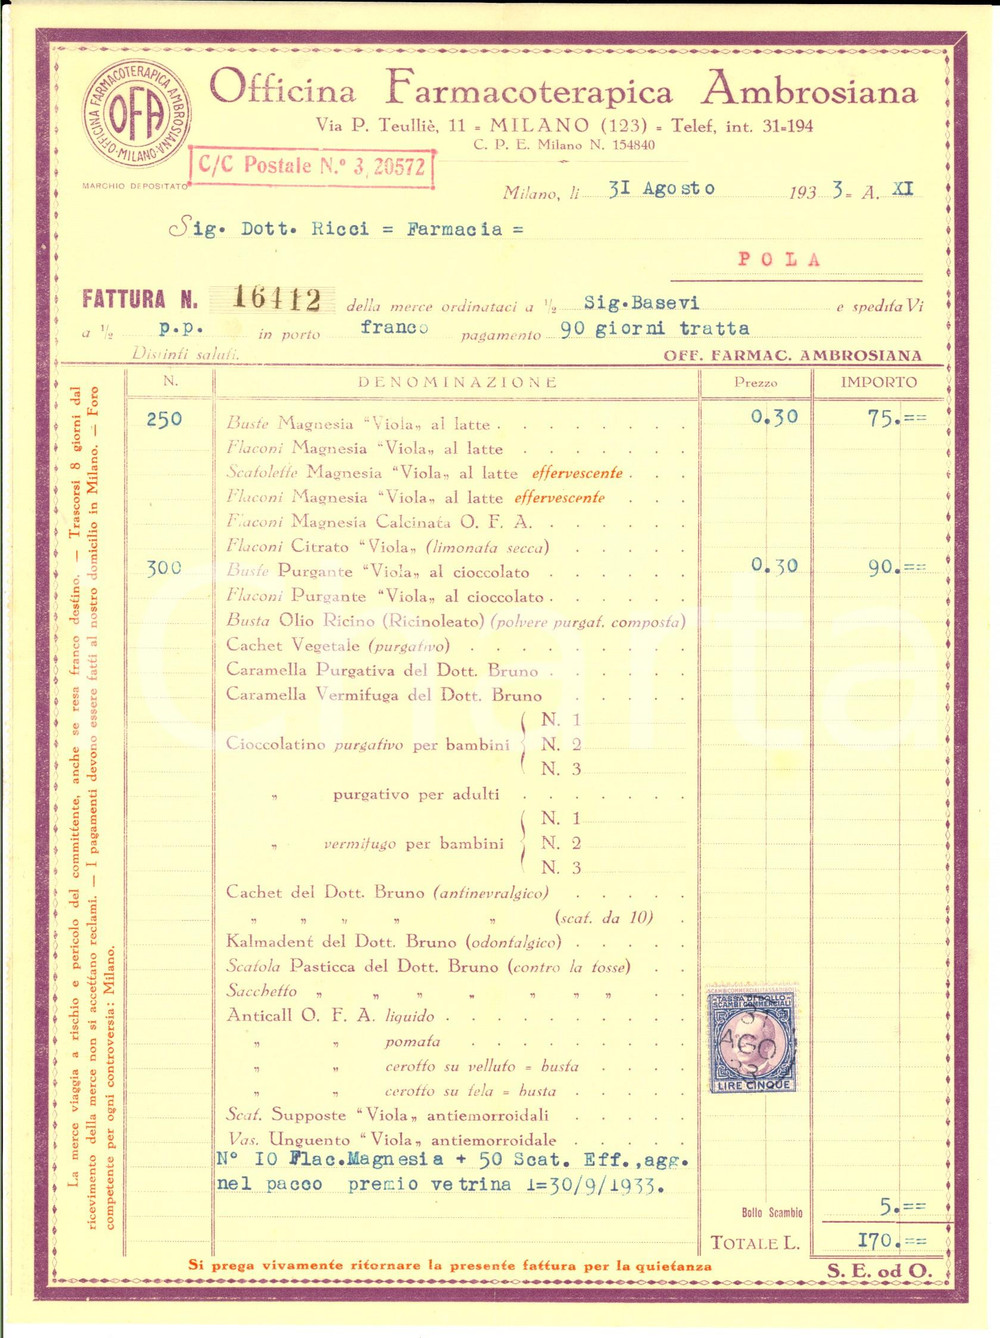 Officina Farmacoterapica Ambrosiana
OFFICINA FARMACOTERAPICA AMBROSIANA
OFA
MILANO
MARCHIO DEPOSITATO
Via P. Teulliè, 11 = MILANO (123) = Telef, int. 31=194
C. P. E. Milano N. 154840
C/C Postale N.° 3, 20572
Milano, li 31 Agosto 1933= A. XI
Sig. Dott. Ricci = Farmacia =
POLA
FATTURA N. 16412 della merce ordinataci a ½ Sig.Basevi e spedita Vi
a ½ p.p. in porto franco pagamento 90 giorni tratta
Distinti saluti. OFF. FARMAC. AMBROSIANA
N. DENOMINAZIONE Prezzo IMPORTO
250 Buste Magnesia “Viola„ al latte 0.30 75.==
Flaconi Magnesia “Viola„ al latte
Scatolette Magnesia “Viola„ al latte effervescente
Flaconi Magnesia “Viola„ al latte effervescente
Flaconi Magnesia Calcinata O. F. A.
Flaconi Citrato “Viola„ (limonata secca)
300 Buste Purgante “Viola„ al cioccolato 0.30 90.==
Flaconi Purgante “Viola„ al cioccolato
Busta Olio Ricino (Ricinoleato) (polvere purgat. composta)
Cachet Vegetale (purgativo)
Caramella Purgativa del Dott. Bruno
Caramella Vermifuga del Dott. Bruno
N. 1
Cioccolatino purgativo per bambini N. 2
N. 3
„ purgativo per adulti
N. 1
„ vermifugo per bambini N. 2
N. 3
Cachet del Dott. Bruno (antinevralgico)
„ „ „ „ „ (scat. da 10)
Kalmadent del Dott. Bruno (odontalgico)
Scatola Pasticca del Dott. Bruno (contro la tosse)
Sacchetto „ „ „ „ „ „ „
Anticall O. F. A. liquido
„ „ pomata
„ „ cerotto su velluto = busta
„ „ cerotto su tela = busta
Scat. Supposte “Viola„ antiemorroidali
Vas. Unguento “Viola„ antiemorroidale
N° 10 Flac.Magnesia + 50 Scat. Eff.,agg.
nel pacco premio vetrina 1=30/9/1933.
TASSA DI BOLLO
SCAMBI COMMERCIALI
31
AGO
33
LIRE CINQUE
Bollo Scambio 5.==
TOTALE L. 170.==
Si prega vivamente ritornare la presente fattura per la quietanza
S. E. od O.
La merce viaggia a rischio e pericolo del committente, anche se resa franco destino. — Trascorsi 8 giorni dal
ricevimento della merce non si accettano reclami. — I pagamenti devono essere fatti al nostro domicilio in Milano. — Foro
competente per ogni controversia: Milano.